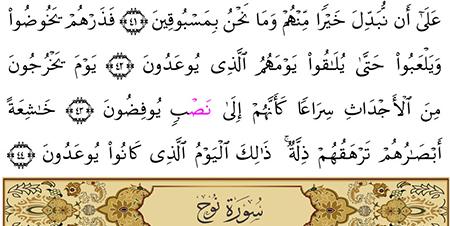 عَلَىٰٓ أَن نُّبَدِّلَ خَيۡرٗا مِّنۡهُمۡ وَمَا نَحۡنُ بِمَسۡبُوقِينَ ﴿٤١﴾ فَذَرۡهُمۡ يَخُوضُواْ
وَيَلۡعَبُواْ حَتَّىٰ يُلَٰقُواْ يَوۡمَهُمُ ٱلَّذِي يُوعَدُونَ ﴿٤٢﴾ يَوۡمَ يَخۡرُجُونَ
مِنَ ٱلۡأَجۡدَاثِ سِرَاعٗا كَأَنَّهُمۡ إِلَىٰ نَصۡبٖ يُوفِضُونَ ﴿٤٣﴾ خَٰشِعَةً
أَبۡصَٰرُهُمۡ تَرۡهَقُهُمۡ ذِلَّةٞۚ ذَٰلِكَ ٱلۡيَوۡمُ ٱلَّذِي كَانُواْ يُوعَدُونَ ﴿٤٤﴾
سُورَةُ نُوحٍ